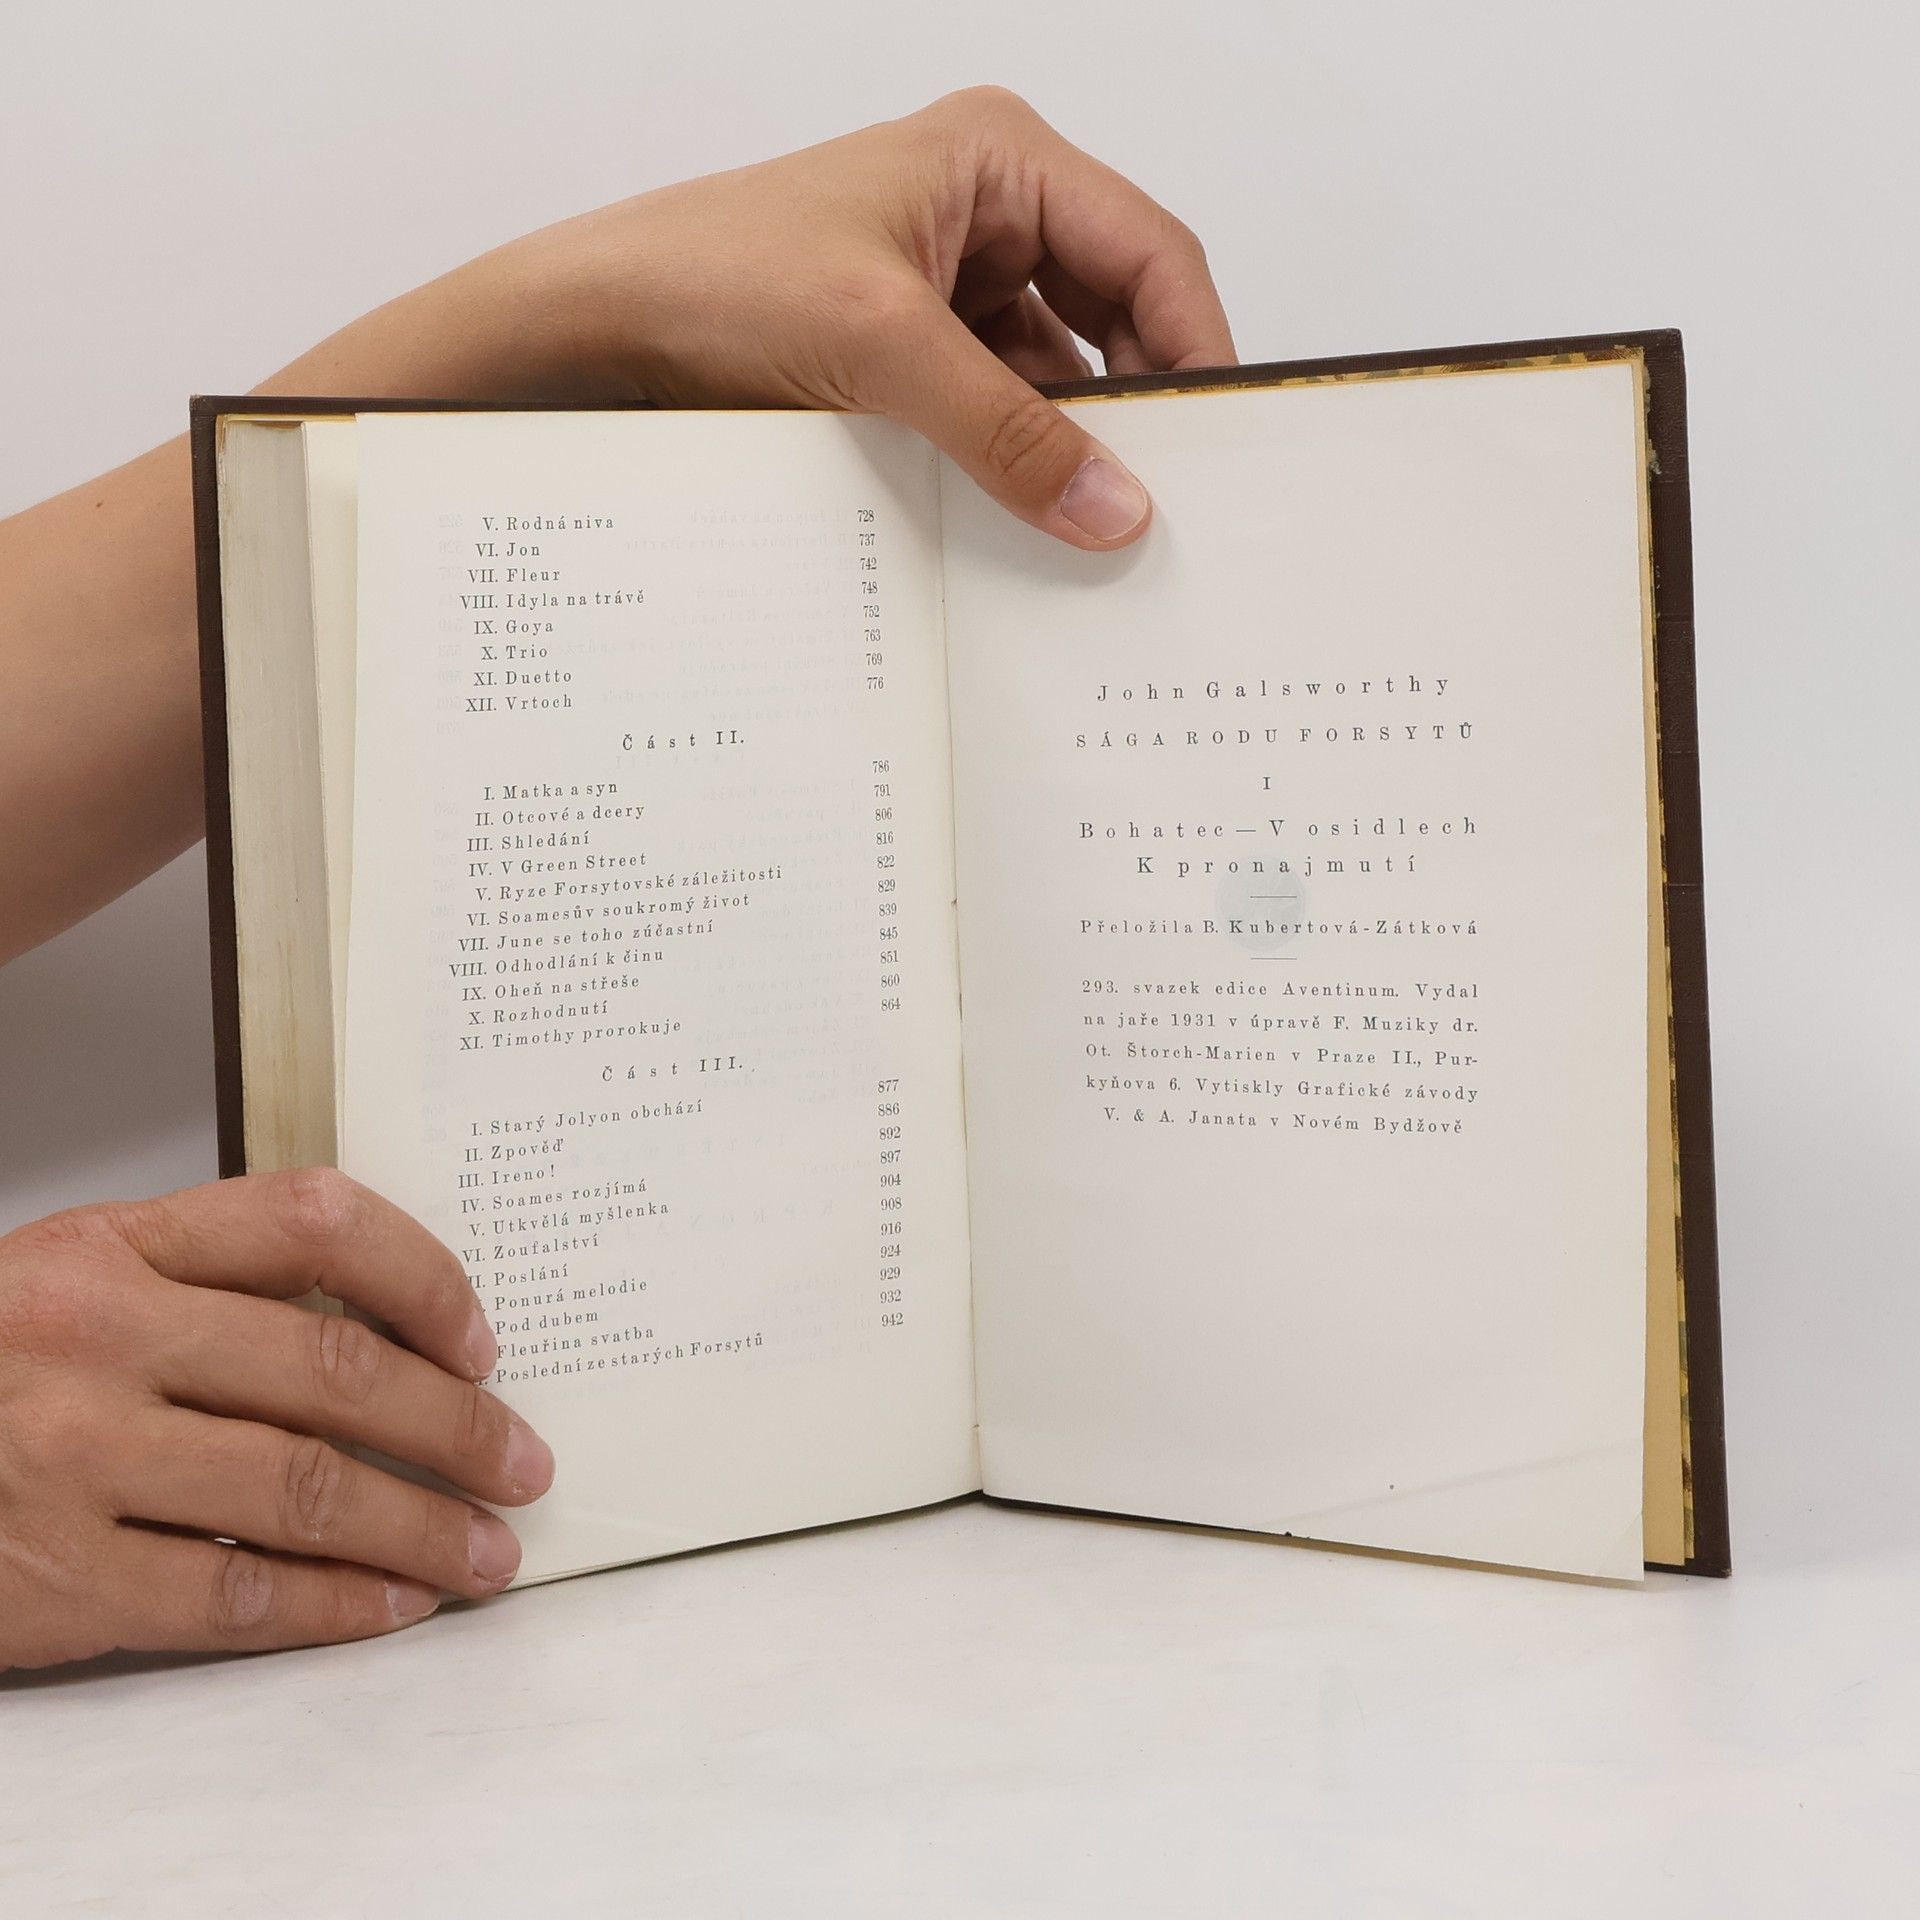 V. Rodná niva 728
VI. Jon 737
VII. Fleur 742
VIII. Idyla na trávě 748
IX. Goya 752
X. Trio 763
XI. Duetto 769
XII. Vrtoch 776
Část II.
I. Matka a syn 786
II. Otcové a dcery 791
III. Shledání 806
IV. V Green Street 816
V. Ryze Forsytovské záležitosti 822
VI. Soamesův soukromý život 829
VII. June se toho zúčastní 839
VIII. Odhodlání k činu 845
IX. Oheň na střeše 851
X. Rozhodnutí 860
XI. Timothy prorokuje 864
Část III.
I. Starý Jolyon obchází 877
II. Zpověď 886
III. Ireno! 892
IV. Soames rozjímá 897
V. Utkvělá myšlenka 904
VI. Zoufalství 908
II. Poslání 916
Ponurá melodie 924
Pod dubem 929
Fleuřina svatba 932
Poslední ze starých Forsytů 942
John Galsworthy
SÁGA RODU FORSYTŮ
I
Bohatec — V osidlech
K pronajmutí
Přeložila B. Kubertová-Zátková
293. svazek edice Aventinum. Vydal
na jaře 1931 v úpravě F. Muziky dr.
Ot. Štorch-Marien v Praze II., Pur-
kyňova 6. Vytiskly Grafické závody
V. & A. Janata v Novém Bydžově